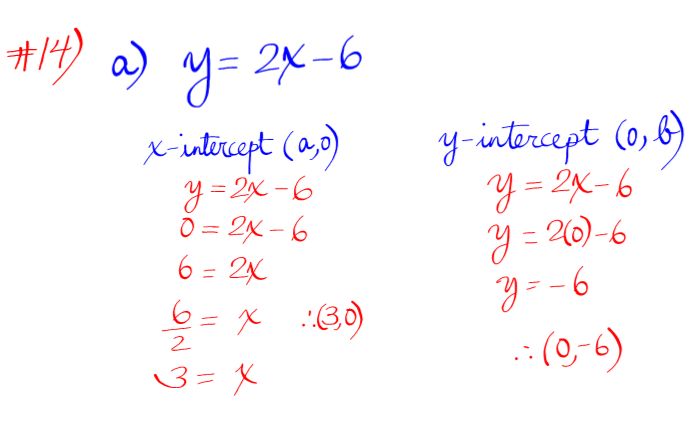 #14) a) y = 2x - 6
x-intercept (a,0)
y = 2x - 6
0 = 2x - 6
6 = 2x
6/2 = x ∴(3,0)
3 = x
y-intercept (0, b)
y = 2x - 6
y = 2(0) - 6
y = -6
∴ (0,-6)